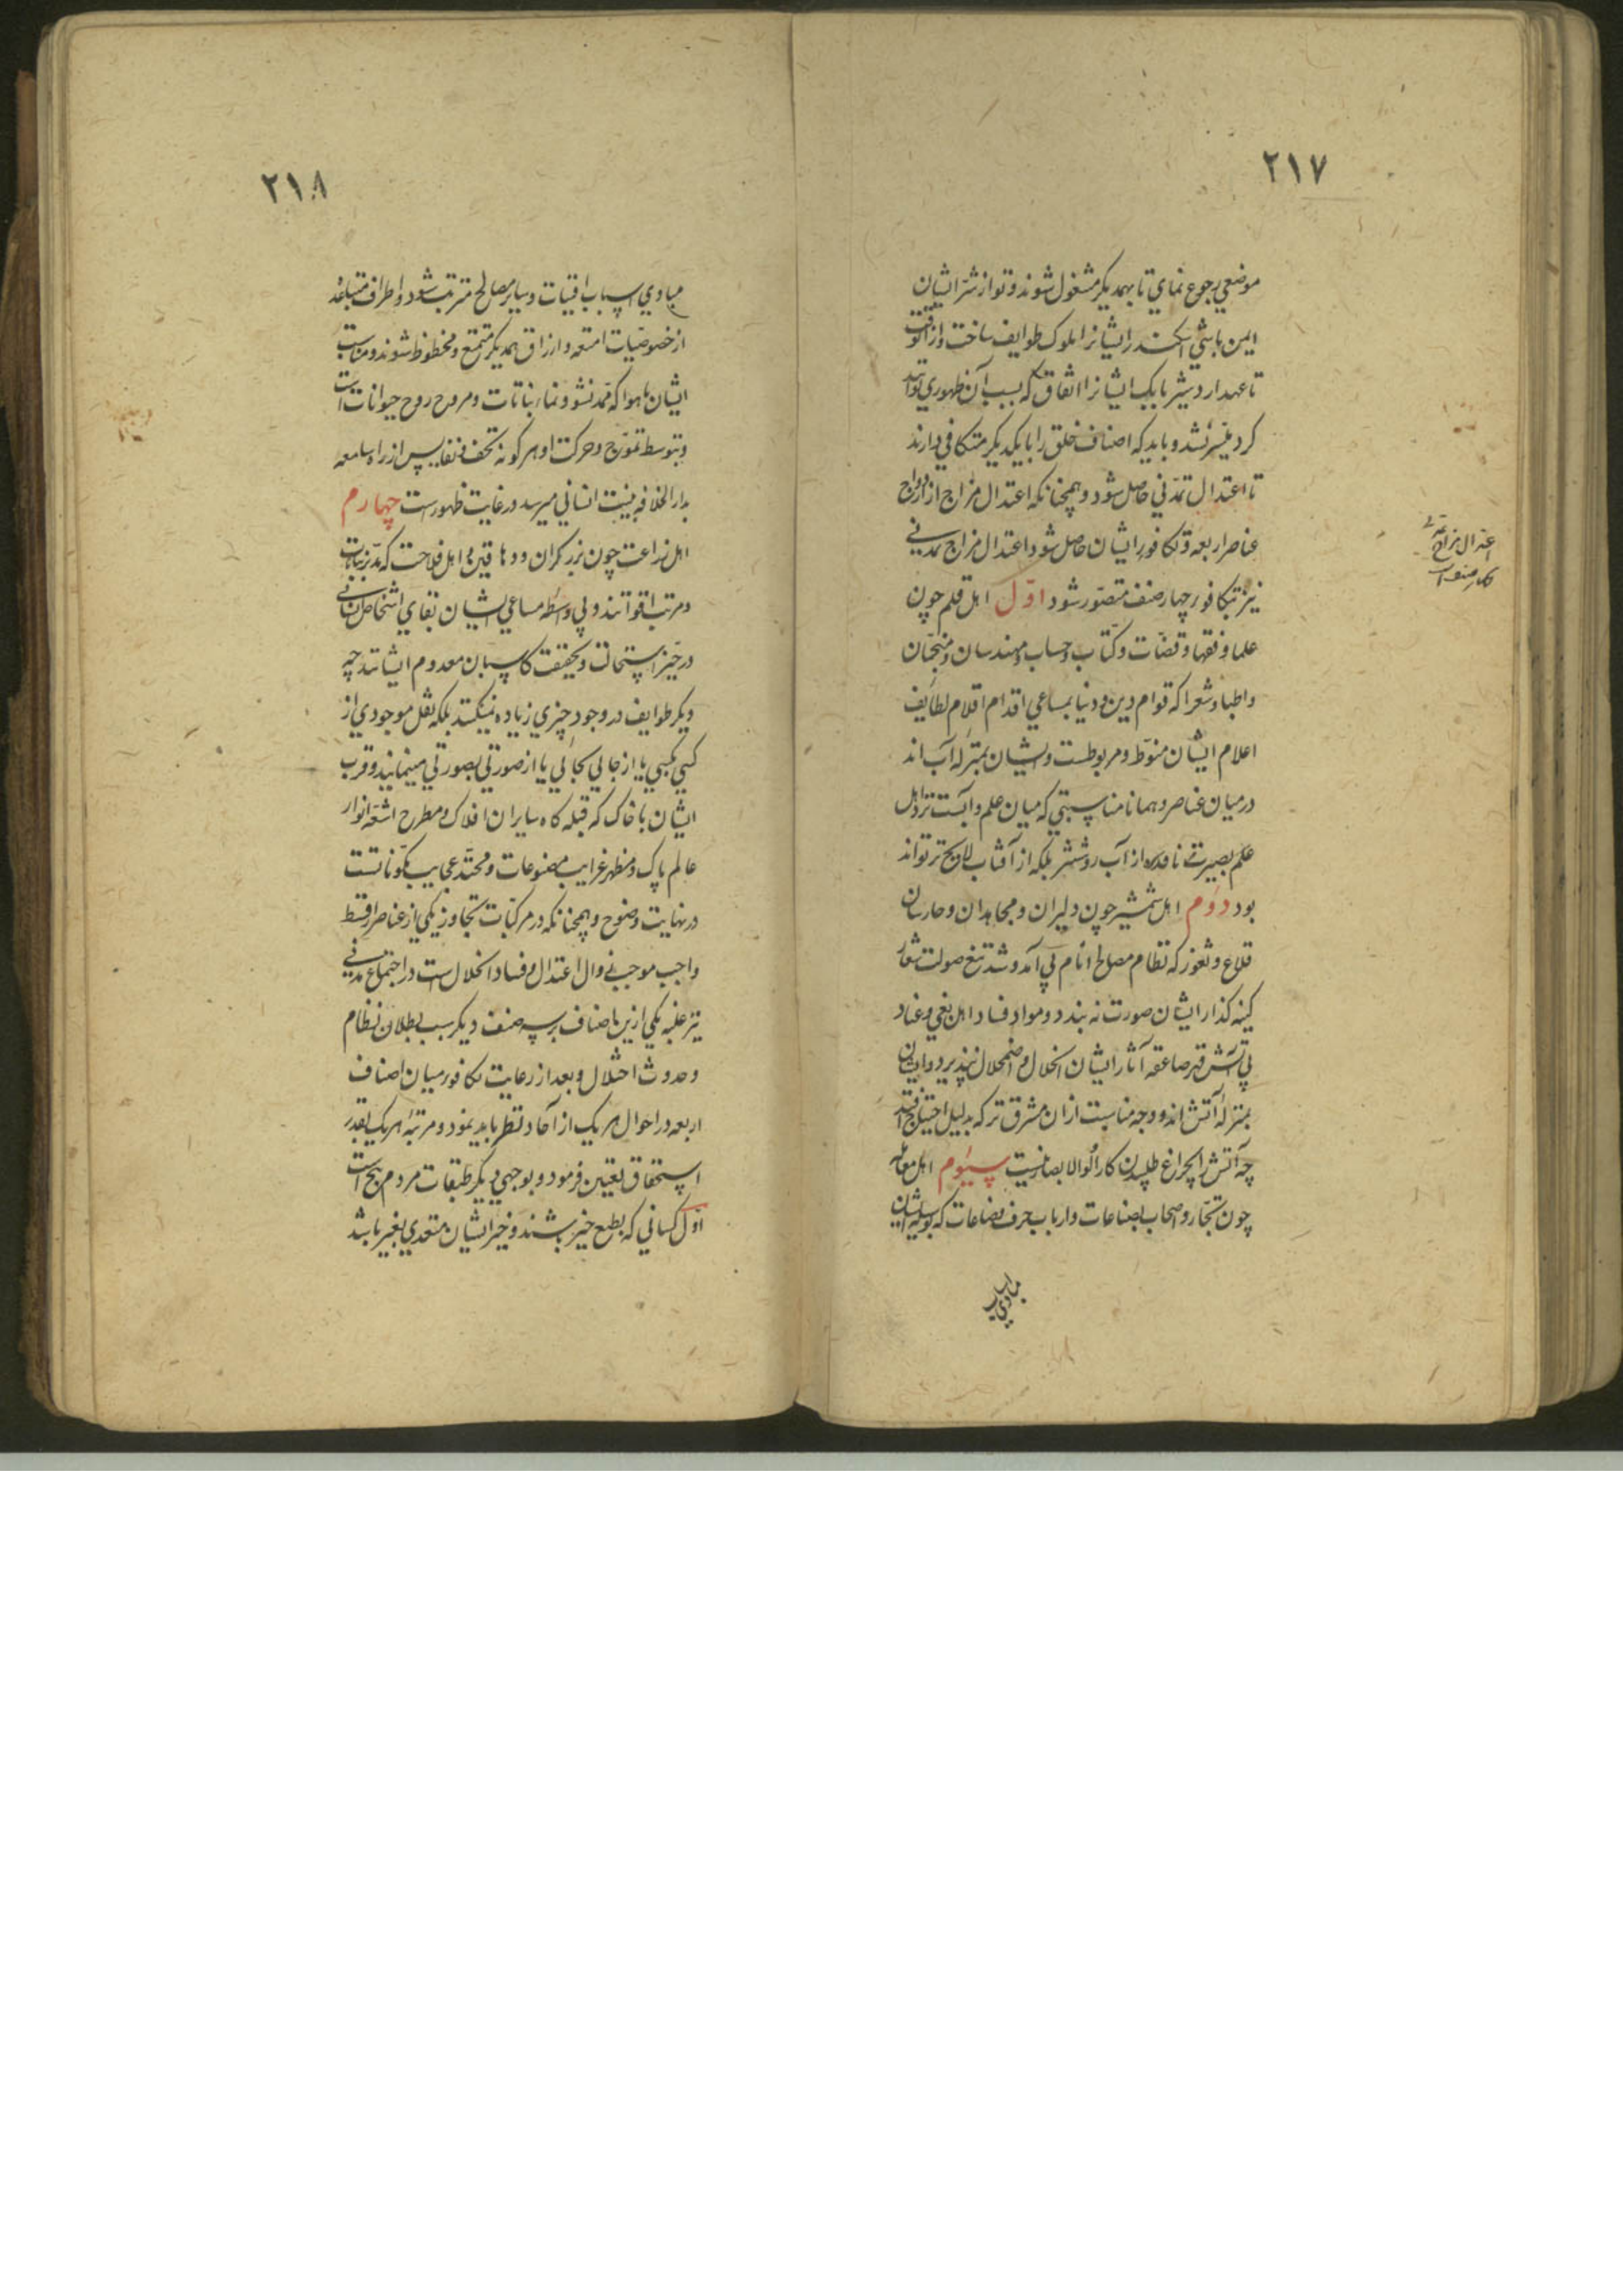 ٢١٧
موضعی رجوع نمای تا بهمدیگر مشغول شوند و تو از شر ایشان
ایمن باشی اسکندر ایشانرا ملوک طوایف ساخت و از آنوقت
تا عهد اردشیر بابک ایشانرا اتفاقی که بسبب آن ظهوری توانند
کرد میسر نشد و باید که اصناف خلق را با یکدیگر متکافی دارند
تا اعتدال تمدنی حاصل شود و همچنانکه اعتدال مزاج از ازدواج
عناصر اربعه و تکافور ایشان حاصل شود اعتدال مزاج تمدنی
نیز بتکافور چهار صنف متصور شود اول اهل قلم چون
علما و فقها و قضات و کتاب و حساب و مهندسان و منجمان
و اطبا و شعرا که قوام دین و دنیا بمساعی اقدام اقلام لطایف
اعلام ایشان منوط و مربوطست و ایشان بمنزله آب اند
در میان عناصر و همانا مناسبتی که میان علم و آبست نزد اهل
علم بصیرت ناقده از آب روشنتر بلکه از آفتاب لایح تر تواند
بود دوم اهل شمشیر چون دلیران و مجاهدان و حارسان
قلاع و ثغور که نظام مصالح انام بی آمد و شد تیغ صولت شعار
کینه گذار ایشان صورت نه بندد و مواد فساد اهل بغی و عناد
بی آتش قهر صاعقه آثار ایشان انحلال و اضمحلال نپذیرد و ایشان
بمنزله آتش اند و وجه مناسبت ازان مشرق تر که بدلیل احتیاج افتد
چه آتش را بچراغ طلبیدن کار اولوالابصار نیست سیوم اهل معامله
چون تجار و اصحاب بضاعات و ارباب حرف و صناعات که بوسیله ایشان
مبادی اسباب
اعتدال مزاج
٢١٨
مبادی اسباب اقتیات و سایر مصالح مترتب شود و اطراف متباعد
از خصوصیات امتعه و ارزاق همدیگر متمتع و محظوظ شوند و مناسبت
ایشان با هوا که ممد نشو و نماء نباتات و مروح روح حیوانات است
و بتوسط تموج و حرکت او هر گونه تحف و نفایس از راه سامعه
بدار الخلافه بنیت انسانی میرسد در غایت ظهورست چهارم
اهل زراعت چون بزرگران و دهاقین و اهل فلاحت که مدبر نباتات
و مرتب اقواتند و بی واسطه مساعی ایشان بقای اشخاص انسانی
در حیز استحالت و بحقیقت کاسبان معدوم ایشانند چه
دیگر طوایف در وجود چیزی زیاده نمیکنند بلکه نقل موجودی از
کسی بکسی یا از جایی بجایی یا از صورتی بصورتی مینمایند و قرب
ایشان با خاک که قبله گاه سایران افلاک و مطرح اشعه انوار
عالم پاک و مظهر غرایب مصنوعات و محتد عجایب مکوناتست
در نهایت وضوح و همچنانکه در مرکبات تجاوز یکی از عناصر از قسط
واجب موجب زوال اعتدال و فساد انحلال است در اجتماع مدنی
نیز غلبه یکی ازین اصناف بر سه صنف دیگر سبب بطلان نظام
و حدوث اختلال و بعد از رعایت تکافور میان اصناف
اربعه در احوال هر یک از آحاد نظر باید نمود و مرتبه هر یک بقدر
استحقاق تعیین فرمود و بوجهی دیگر طبقات مردم پنج است
اول کسانی که بطبع خیر باشند و خیر ایشان متعدی بغیر باشد